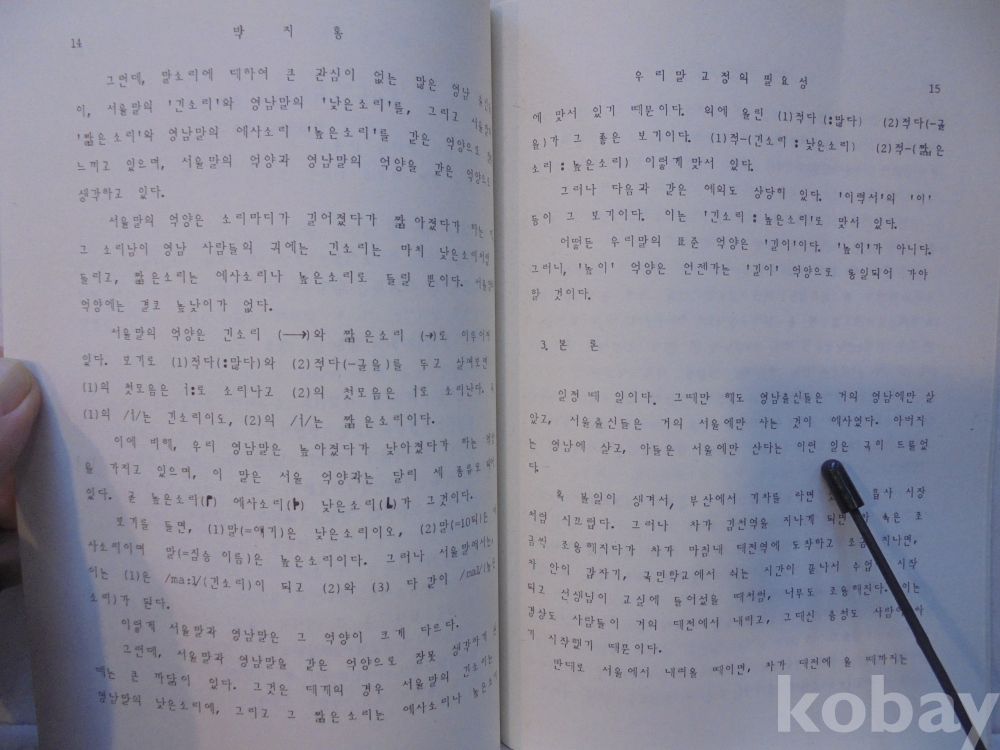 14
박 지 홍
그런데, 말소리에 대하여 큰 관심이 없는 많은 영남
이, 서울말의 '긴소리'와 영남말의 '낮은소리'를, 그리고
'짧은소리'와 영남말의 예사소리 '높은소리'를 같은 억양으로
느끼고 있으며, 서울말의 억양과 영남말의 억양을 같은 억양으로
생각하고 있다.
서울말의 억양은 소리마디가 길어졌다가 짧아졌다가 하는
그 소리남이 영남 사람들의 귀에는 긴소리는 마치 낮은소리처럼
들리고, 짧은소리는 예사소리나 높은소리로 들릴 뿐이다.
억양에는 결코 높낮이가 없다.
서울말의 억양은 긴소리 (―→)와 짧은소리 (→)로 이루어져
있다. 보기로 (1)적다(:많다)와 (2)적다(-글을)를 두고 살펴보면
(1)의 첫모음은 ㅓ:로 소리나고 (2)의 첫모음은 ㅓ로 소리난다.
(1)의 /ㅓ/는 긴소리이도, (2)의 /ㅓ/는 짧은소리이다.
이에 비해, 우리 영남말은 높아졌다가 낮아졌다가 하는
을 가지고 있으며, 이 말은 서울 억양과는 달리 세 종류로 되어
있다. 곧 높은소리(┏) 예사소리(┣) 낮은소리(┗)가 그것이다.
보기를 들면, (1)말(=얘기)은 낮은소리이오, (2)말(=10되)은
사소리이며 말(=짐승 이름)은 높은소리이다. 그러나 서울말에서는
이는 (1)은 /ma:l/(긴소리)이 되고 (2)와 (3) 다 같이 /mal/
소리)가 된다.
이렇게 서울말과 영남말은 그 억양이 크게 다르다.
그런데, 서울말과 영남말을 같은 억양으로 잘못 생각하기
에는 큰 까닭이 있다. 그것은 대개의 경우 서울말의 긴소리는
영남말의 낮은소리에, 그리고 그 짧은소리는 예사소리나 높은소리
우리말 교정의 필요성
15
에 맞서 있기 때문이다. 위에 올린 (1)적다 (:많다) (2)적다(-글
을)가 그 좋은 보기이다. (1)적-(긴소리:낮은소리) (2)적-(짧은
소리:높은소리) 이렇게 맞서 있다.
그러나 다음과 같은 예외도 상당히 있다. '이력서'의 '이'
등이 그 보기이다. 이는 '긴소리:높은소리'로 맞서 있다.
어떻든 우리말의 표준 억양은 '길이'이다. '높이'가 아니다.
그러니, '높이' 억양은 언젠가는 '길이' 억양으로 통일되어 가야
할 것이다.
3. 본 론
일정 때 일이다. 그때만 해도 영남출신들은 거의 영남에만 살
았고, 서울출신들은 거의 서울에만 사는 것이 예사였다. 아버지
는 영남에 살고, 아들은 서울에만 산다는 이런 일은 극히 드물었
다.
혹 볼일이 생겨서, 부산에서 기차를 타면 흡사 시장
처럼 시끄럽다. 그러나 차가 김천역을 지나게 되면 혹은 조
금씩 조용해지다가 차가 마침내 대전역에 도착하고 조금 지나면,
차 안이 갑자기, 국민학교에서 쉬는 시간이 끝나서 수업 시작
되고 선생님이 교실에 들어섰을 때처럼, 너무도 조용해진다. 이는
경상도 사람들이 거의 대전에서 내리고, 그대신 충청도 사람이
기 시작했기 때문이다.
반대로 서울에서 내려올 때이면, 차가 대전에 올 때까지는
kobay